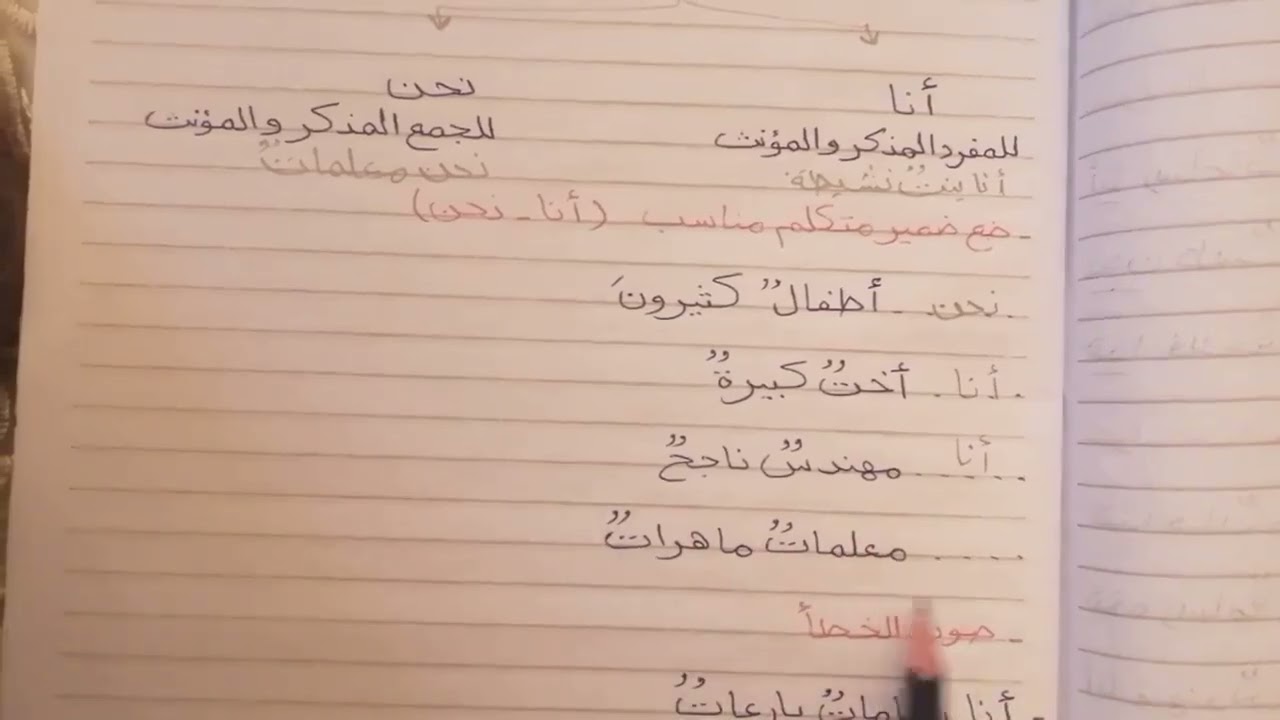 أنا
للمفرد المذكر والمؤنث
أنا بنتٌ نشيطة
نحن
للجمع المذكر والمؤنث
نحن معلماتٌ
- ضع ضمير متكلم مناسب (أنا - نحن)
. نحن . أطفالٌ كثيرونَ
. أنا . أختٌ كبيرةٌ
..أنا.. مهندسٌ ناجحٌ
..... معلماتٌ ماهراتٌ
- صوب الخطأ
- أنا بارعاتٌ